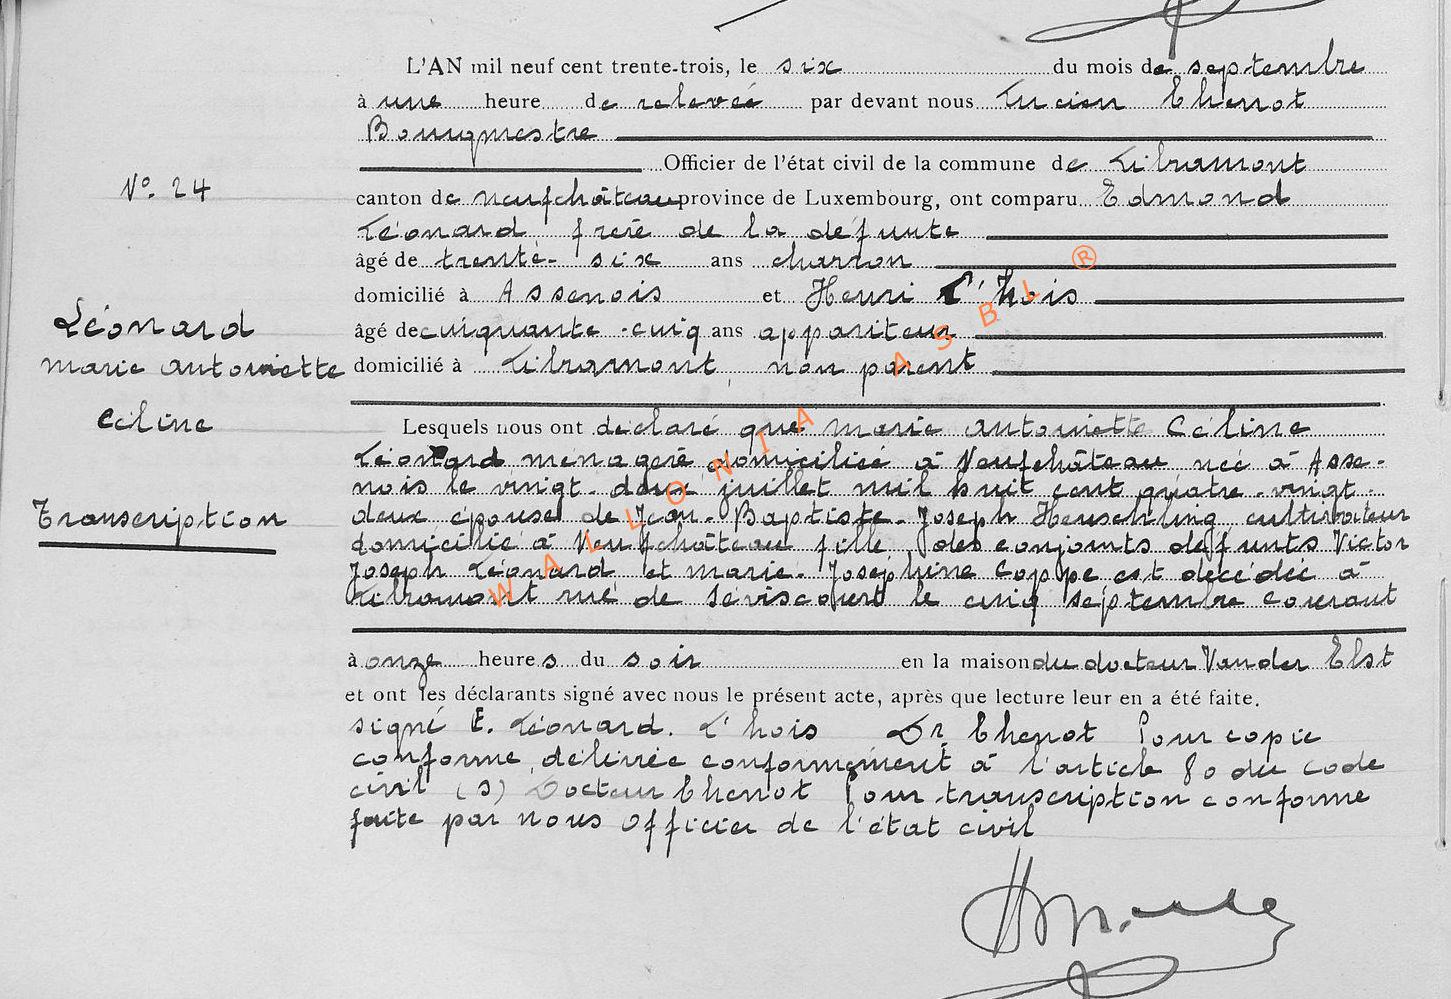 L'AN mil neuf cent trente-trois, le six du mois de septembre
à une heure de relevée par devant nous Lucien Thenot
Bourgmestre
Officier de l'état civil de la commune de Libramont
N° 24
canton de Neufchâteau province de Luxembourg, ont comparu Edmond
Léonard frère de la défunte
âgé de trente-six ans charron
domicilié à Assenois et Henri L'hois
Léonard
âgé de cinquante-cinq ans appariteur
marie Antoinette
domicilié à Libramont, non parent
Céline
Lesquels nous ont déclaré que marie Antoinette Céline
Léonard ménagère domiciliée à Neufchâteau née à Asse-
nois le vingt-deux juillet mil huit cent quatre-vingt-
Transcription
deux épouse de Jean-Baptiste-Joseph Heuschling cultivateur
domicilié à Neufchâteau fille des conjoints défunts Victor
Joseph Léonard et marie-Joséphine Coppe est décédée à
Libramont rue de Séviscourt le cinq septembre courant
à onze heures du soir en la maison du docteur Vander Elst
et ont les déclarants signé avec nous le présent acte, après que lecture leur en a été faite.
signé E. Léonard. L'hois Dr Thenot Pour copie
conforme délivrée conformément à l'article 80 du code
civil (s) Docteur Thenot Pour transcription conforme
faite par nous Officier de l'état civil
WALLONIA ASBL ®